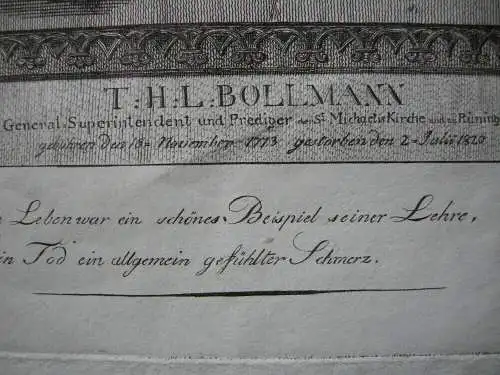 T: H: L: BOLLMANN
General-Superintendent und Prediger der St Michaelis Kirche und zu Rüning
gebohren den 18= November 1773 gestorben den 2= Julii 1820
Leben war ein schönes Beispiel seiner Lehre,
Tod ein allgemein gefühlter Schmerz.